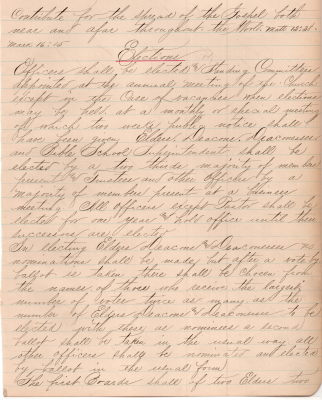 Contribute for the spread of the Gospel both
near and afar throughout the World. Matt 28:21-
Marc 16:15
Elections
Officers shall be elected & Standing Committees
appointed at the annual meeting of the Church
except in the case of vacancies when elections
may be held at a monthly or special meeting
of which two weeks public notice shall
have been given. Elders, Deacons, Deaconesses
and Bible School Superintendent shall be
elected thirds majority of member
present Trustees and other officers by a
majority of member present at a business
meeting. All officers except Pastor shall be
elected for one year & hold office until their
successors are elected
In electing Elders Deacons & Deaconesses no
nominations shall be made, but after a vote by
ballot is taken there shall be chosen from
the names of those who receive the largest
number of votes twice as many as the
number of Elders Deacons & Deaconesses to be
elected with these as nominees a second
ballot shall be taken in the usual way all
other officers shall be nominated and elected
by ballot in the usual form
The first Boards shall of two Elders two